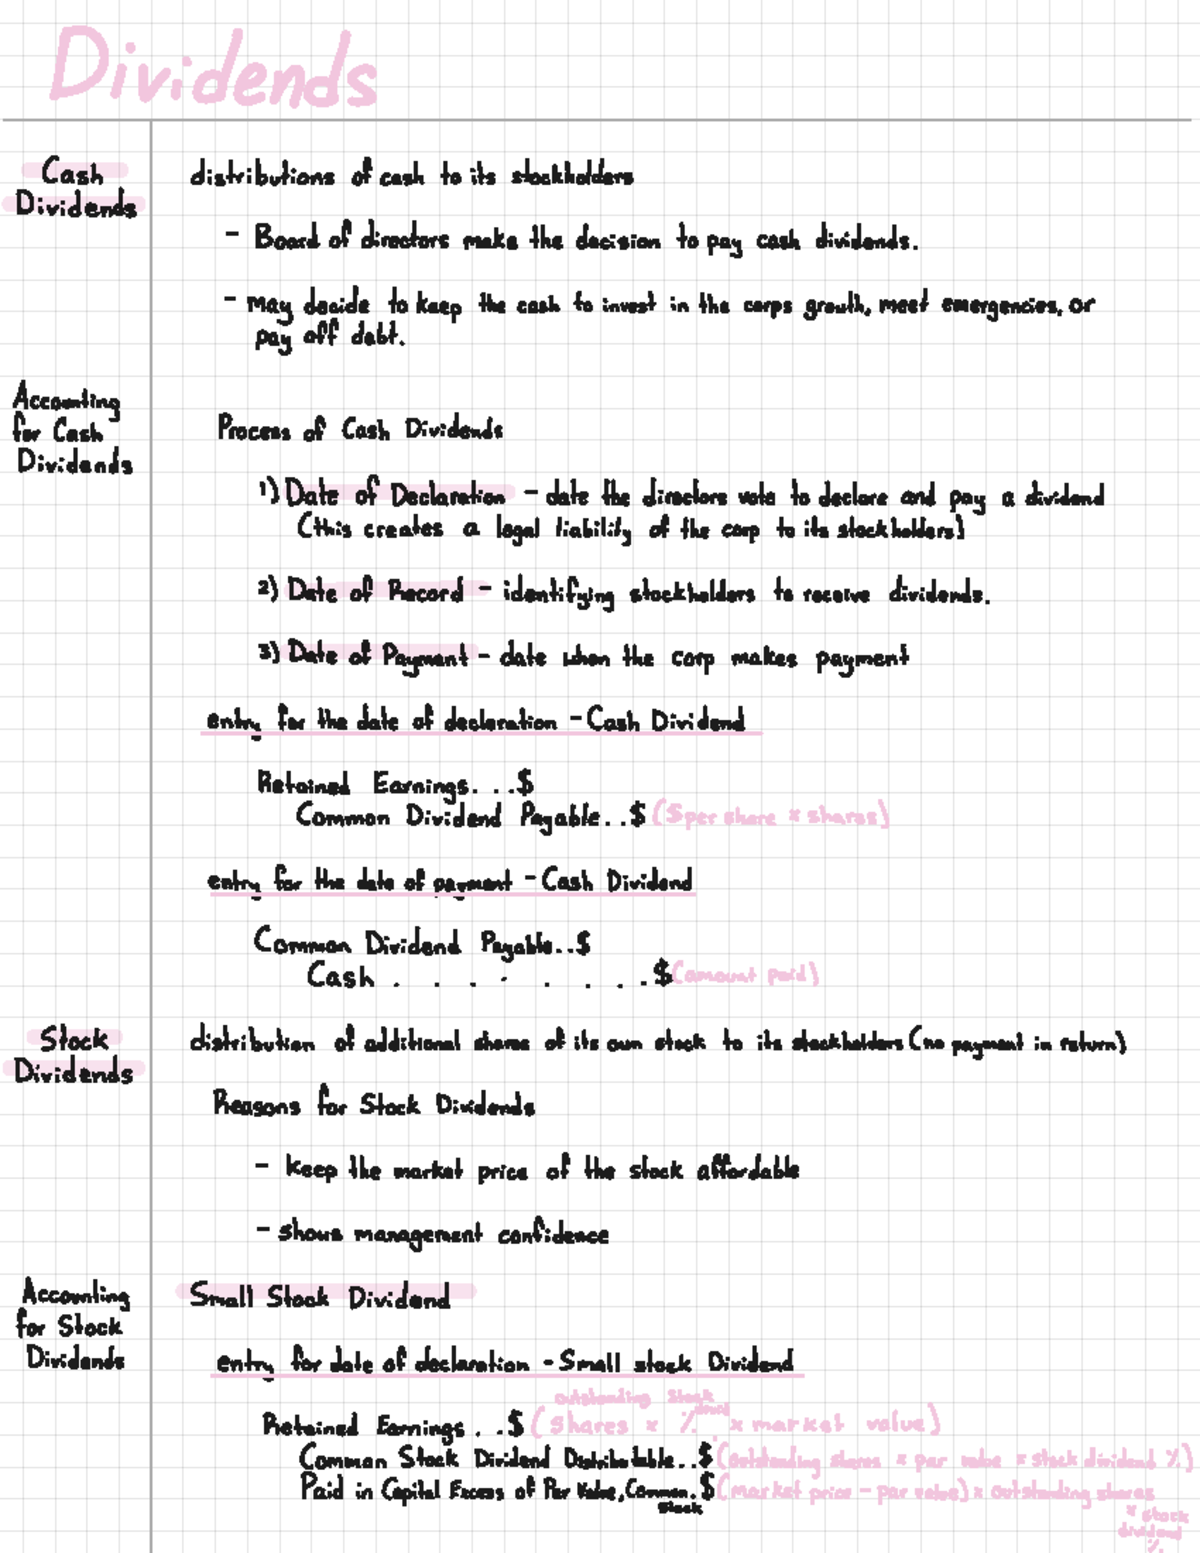 Dividends
Cash
Dividends
distributions of cash to its stockholders
- Board of directors make the decision to pay cash dividends.
- may decide to keep the cash to invest in the corps growth, meet emergencies, or
pay off debt.
Accounting
for Cash
Dividends
Process of Cash Dividends
1) Date of Declaration - date the directors vote to declare and pay a dividend
(this creates a legal liability of the corp to its stockholders)
2) Date of Record - identifying stockholders to receive dividends.
3) Date of Payment - date when the corp makes payment
entry for the date of declaration - Cash Dividend
Retained Earnings. . .$
Common Dividend Payable. . $ ($ per share x shares)
entry for the date of payment - Cash Dividend
Common Dividend Payable. . $
Cash . . . . . . . . $ (amount paid)
Stock
Dividends
distribution of additional shares of its own stock to its stockholders (no payment in return)
Reasons for Stock Dividends
- keep the market price of the stock affordable
- shows management confidence
Accounting
for Stock
Dividends
Small Stock Dividend
entry for date of declaration - Small stock Dividend
outstanding stock
Retained Earnings . . $ (shares x % x market value)
Common Stock Dividend Distributable. . $ (outstanding shares x par value x stock dividend %)
Paid in Capital Excess of Par Value, Common. $ (market price - par value) x outstanding shares
Stock
x stock
dividend
%